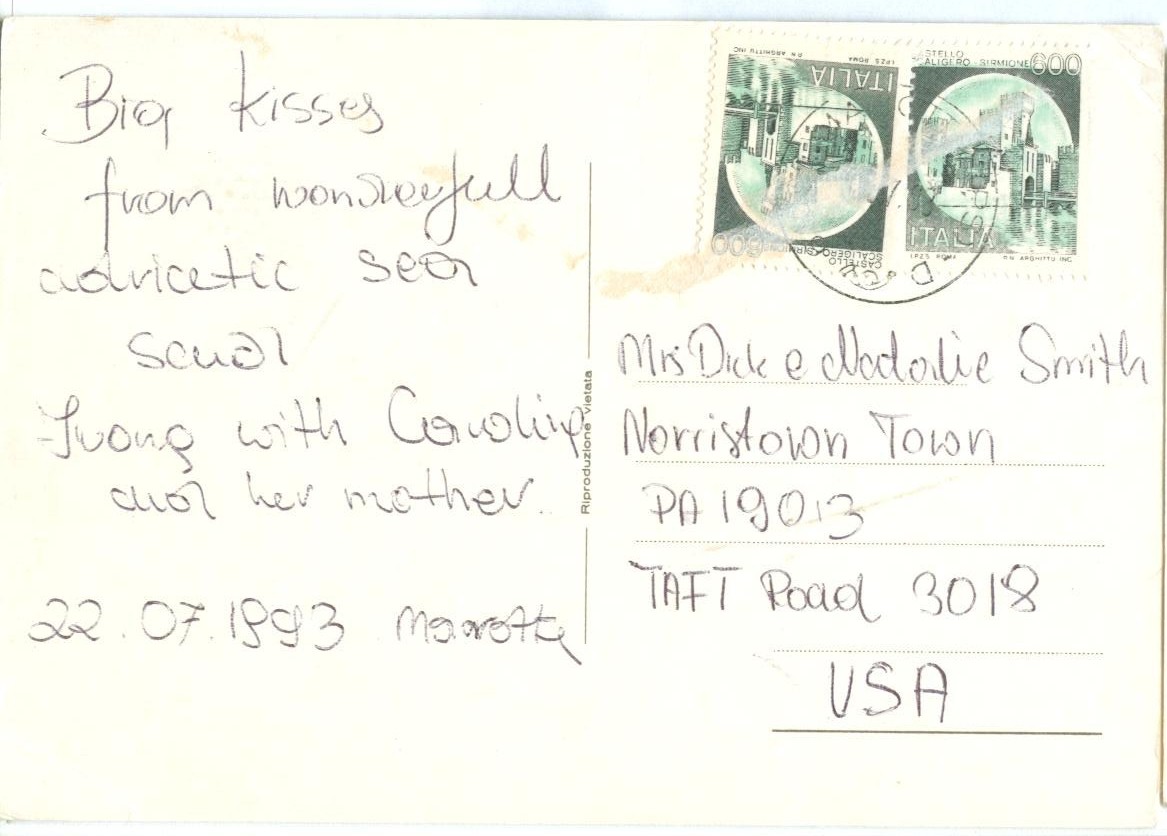 Big kisses
from wonderfull
adricetic sea
send
Ivona with Caroline
and her mother.
22.07.1993 Marotta
Riproduzione vietata
I.P.Z.S. ROMA P.N. ARGHITTU INC
ITALIA
600
CASTELLO
SCALIGERO - SIRMIONE
CASTELLO
SCALIGERO - SIRMIONE 600
ITALIA
I.P.Z.S. ROMA P.N. ARGHITTU INC
Mrs Dick e Natalie Smith
Norristown Town
PA 19013
TAFT Road 3018
USA